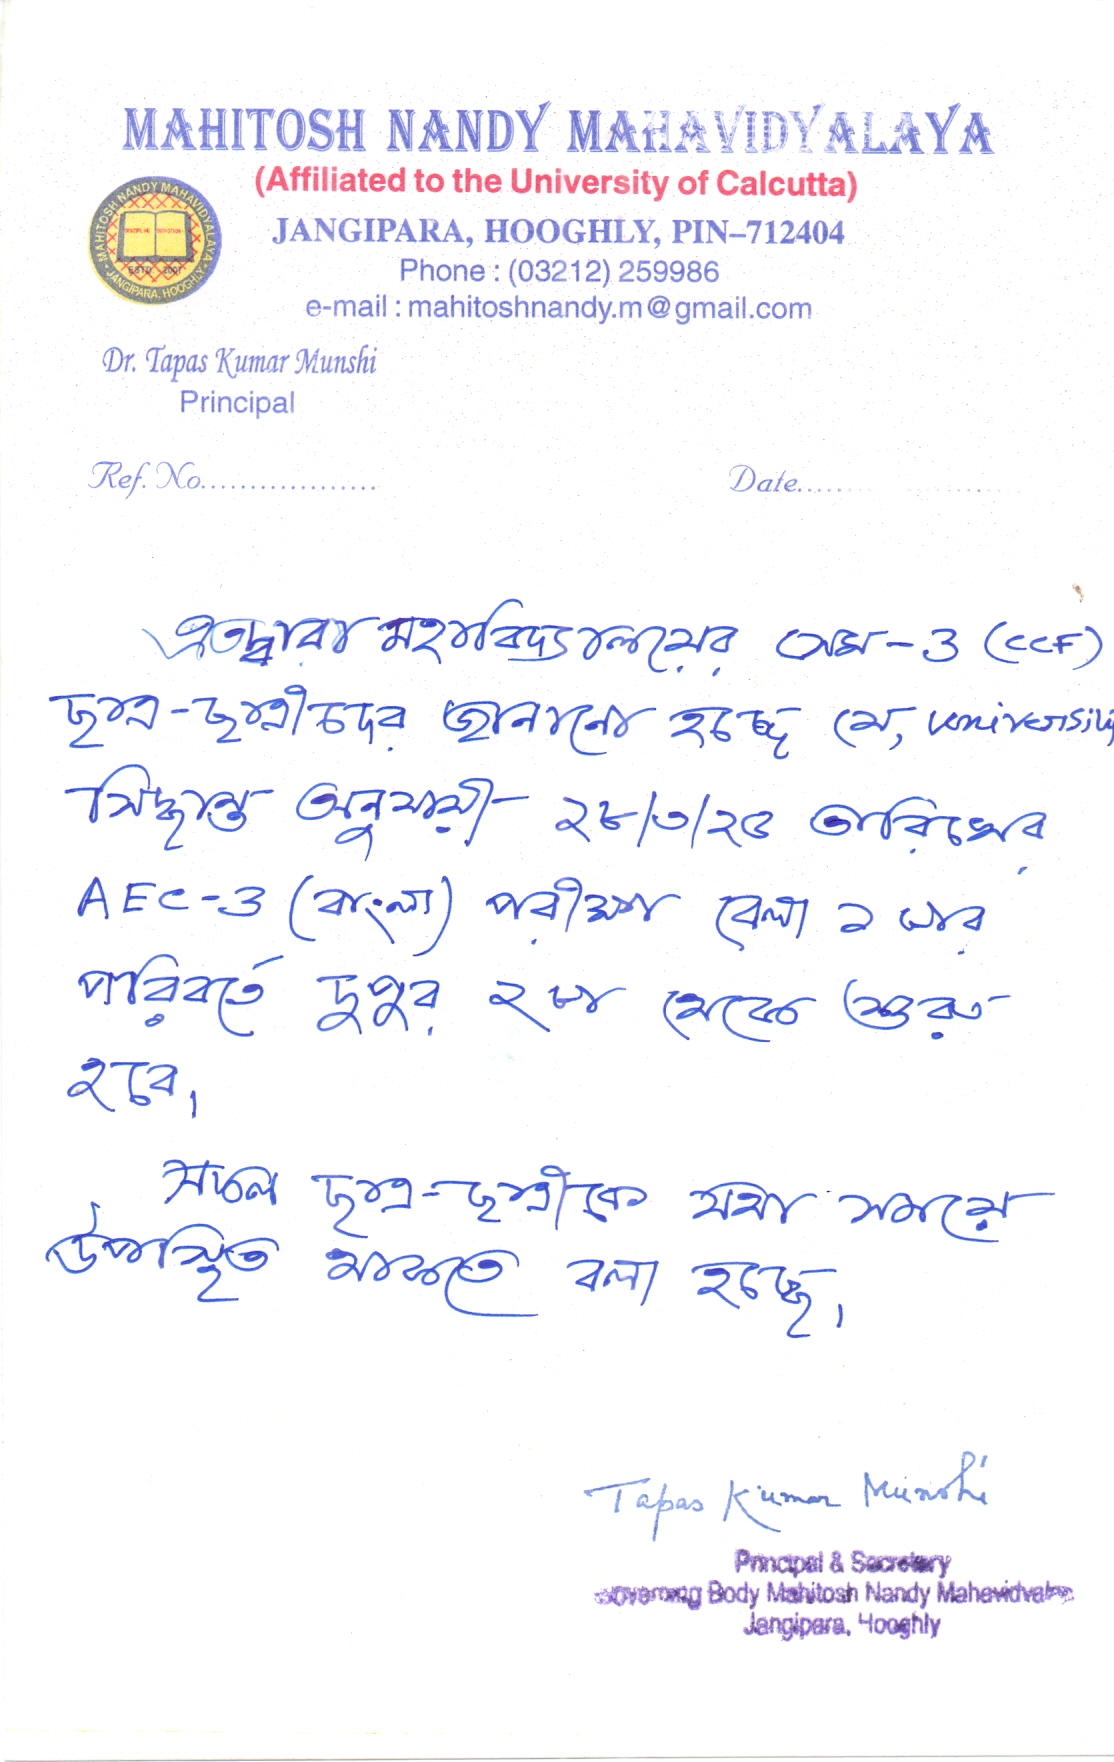 MAHITOSH NANDY MAHAVIDYALAYA
(Affiliated to the University of Calcutta)
JANGIPARA, HOOGHLY, PIN–712404
Phone : (03212) 259986
e-mail : mahitoshnandy.m@gmail.com
MAHITOSH NANDY MAHAVIDYALAYA
ESTD 2007
JANGIPARA, HOOGHLY
Dr. Tapas Kumar Munshi
Principal
Ref. No..................
Date.....
এতদ্বারা মহাবিদ্যালয়ের সেম-৩ (CCF)
ছাত্র-ছাত্রীদের জানানো হচ্ছে যে, University
সিদ্ধান্ত অনুযায়ী ২৮/৩/২৫ তারিখের
AEC-3 (বাংলা) পরীক্ষা বেলা ১ টার
পরিবর্তে দুপুর ২ টা থেকে শুরু
হবে।
সকল ছাত্র-ছাত্রীকে যথা সময়ে
উপস্থিত থাকতে বলা হচ্ছে।
Tapas Kumar Munshi
Principal & Secretary
Governing Body Mahitosh Nandy Mahavidyalaya
Jangipara, Hooghly